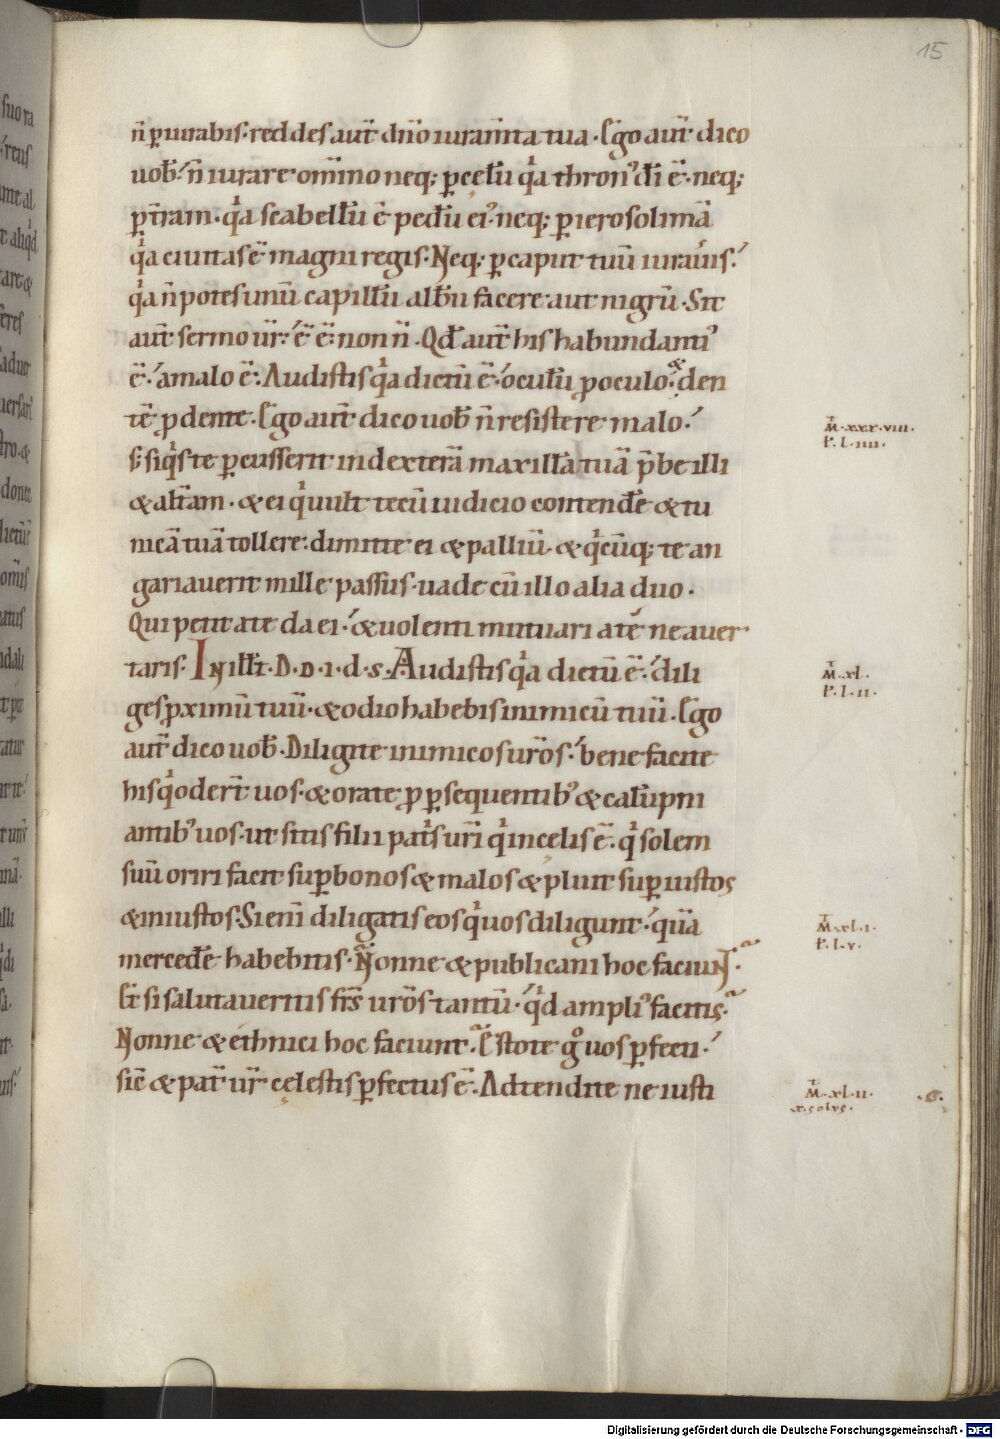 15
n̄ ꝑiurabis· reddes aut̄ dn̄o iuram̄ta tua· Ego aut̄ dico
uob̄· n̄ iurare om̄ino neq; ꝑ celū qͥa thronꝰ dī ē· neq;
ꝑ t̄ram· qͥa scabellū ē pedū eiꝰ neq; ꝑ ierosolimā
qͥa ciuitas ē magni regis· Neq; ꝑ caput tuū iurauis·
qͥa n̄ potes unū capillū albū facere aut nigrū· Sit
aut̄ sermo ur̄· ē ē· non n̄· Qd̄ aut̄ his habundantiꝰ
ē· a malo ē· Audistis qͥa dictū ē· oculū ꝓ oculo· & den
tē ꝓ dente· Ego aut̄ dico uob̄ n̄ resistere malo·
s; siqͥs te ꝑcusserit in dexterā maxillā tuā p̄be illi
& alt̄am· & ei qͥ uult tecū iudicio contendē & tu
nicā tuā tollere· dimitte ei & palliū· & qͥcūq; te an
gariauerit mille passus· uade cū illo alia duo·
Qui petit a te da ei· & uolenti mutuari a te ne auer
taris· In ill̄t· D· D· i· d· s· Audistis qͥa dictū ē· dili
ges ꝓximū tuū· & odio habebis inimicū tuū· Ego
aut̄ dico uob̄· Diligite inimicos ur̄os· bene facite
his qͥ oder̄t uos· & orate ꝓ ꝑsequentibꝰ & calūpni
antibꝰ uos· ut sitis filii pat̄s ur̄i qͥ in celis ē· qͥ solem
suū oriri facit suꝑ bonos & malos & pluit suꝑ iustos
& iniustos· Si eni diligatis eos qͥ uos diligunt· quā
mercedē habebitis· Nonne & publicani hoc faciunt·
Et si salutaueritis fr̄s ur̄os tantū· qͥd ampliꝰ facitis·
Nonne & ethnici hoc faciunt· Estote gͦ uos ꝑfecti·
sic̄ & pat̄ ur̄ celestis ꝑfectus ē· Adtendite ne iusti
M· xxx·viii·
L· l·iiii·
M· xl·
L· l·ii·
M· xl·i·
L· l·v·
M· xl·ii·
x· solus·
Digitalisierung gefördert durch die Deutsche Forschungsgemeinschaft - DFG